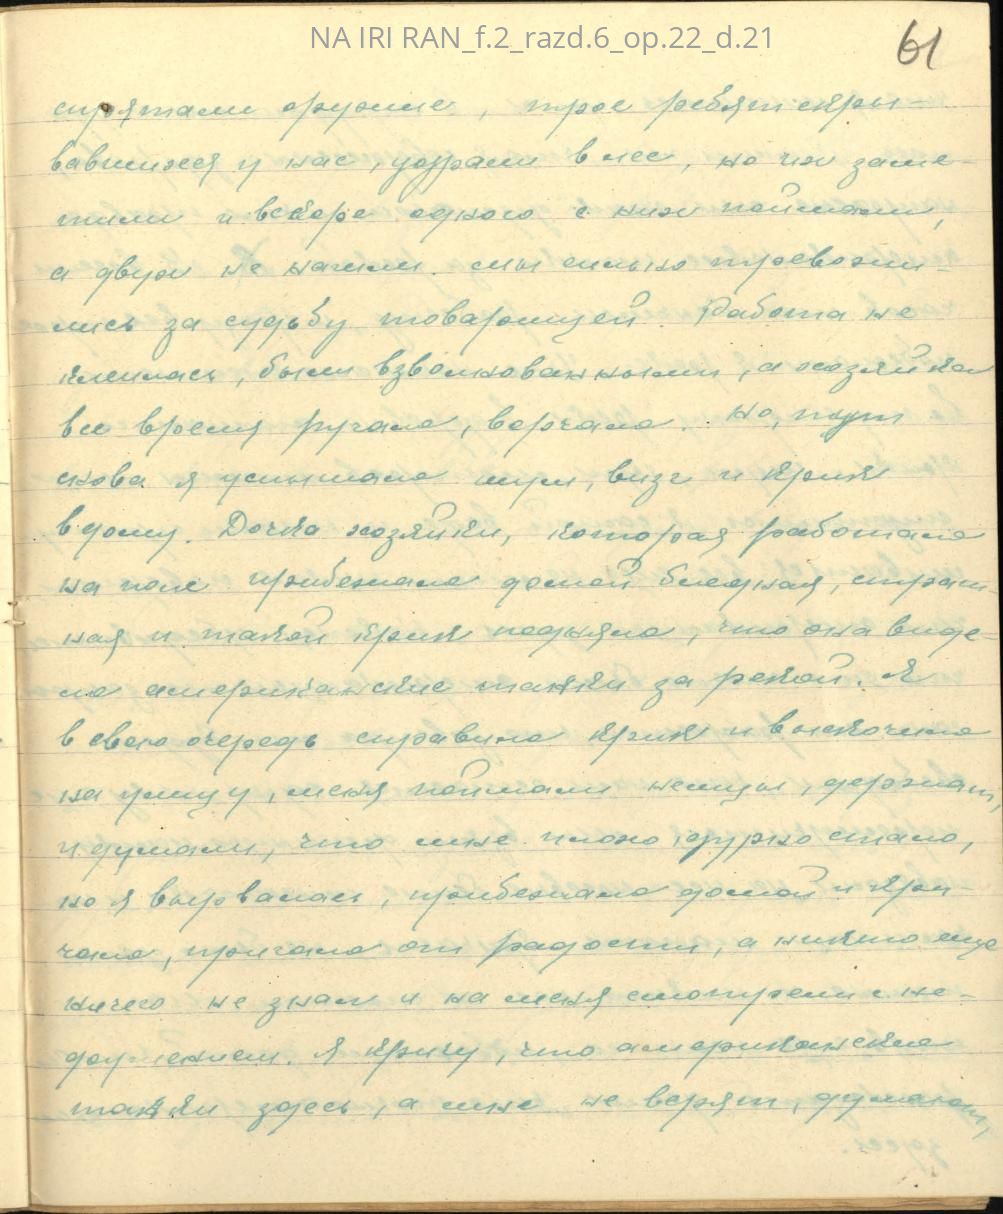 NA IRI RAN_f.2_razd.6_op.22_d.21
61
спрятали оружие, трое ребят скры-
вавшихся у нас, удрали в лес, но их заме-
тили и вскоре одного с них поймали,
а двух не нашли. мы сильно тревожи-
лись за судьбу товарищей. Работа не
клеилась, были взволнованными, а хозяйка
все время ругала, ворчала. Но, тут
снова я услышала шум, визг и крик
в дому. Дочка хозяйки, которая работала
на поле прибежала домой бледная, страш-
ная и такой крик подняла, что она виде-
ла американские танки за рекой. Я
в свою очередь справила крик и выскочила
на улицу, меня поймали немцы, держат,
и думали, что мне плохо, дурно стало,
но я вырвалась, прибежала домой и кри-
чала, пригала от радости, а никто еще
ничего не знал и на меня смотрели с не-
доумением. Я кричу, что американские
танки здесь, а мне не верят, думают,